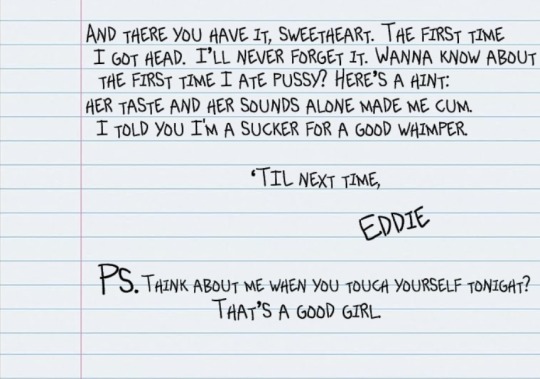 AND THERE YOU HAVE IT, SWEETHEART. THE FIRST TIME
I GOT HEAD. I'LL NEVER FORGET IT. WANNA KNOW ABOUT
THE FIRST TIME I ATE PUSSY? HERE'S A HINT:
HER TASTE AND HER SOUNDS ALONE MADE ME CUM.
I TOLD YOU I'M A SUCKER FOR A GOOD WHIMPER.
'TIL NEXT TIME,
EDDIE
PS. THINK ABOUT ME WHEN YOU TOUCH YOURSELF TONIGHT?
THAT'S A GOOD GIRL.